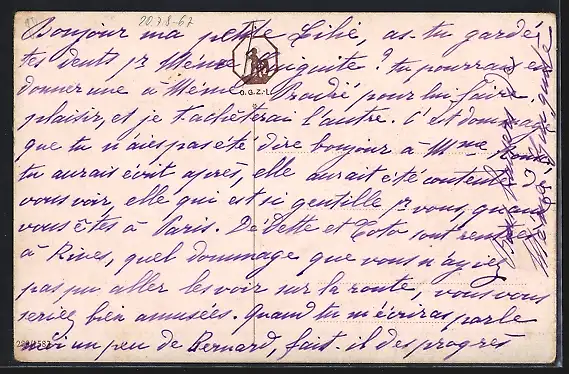 20.7.8-67
Bonjour ma petite Lilie, as-tu gardé
tes dents pr Mémé ? tu pourrais en
donner une à Mémé pour lui faire
plaisir, et je t'achèterai l'autre. C'est dommage
que tu n'aies pas été dire bonjour à Mme
tu aurais écrit après, elle aurait été contente de
vous voir, elle qui est si gentille pr vous, quand
vous êtes à Paris. Dédette et Toto sont rentrés
à Rives, quel dommage que vous n'ayiez
pas pu aller les voir sur la route, vous vous
seriez bien amusées. Quand tu m'écriras parle
moi un peu de Bernard, fait-il des progrès
O.G.Z.-L.